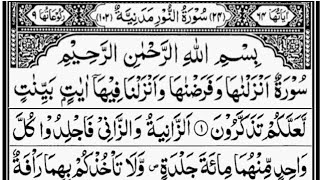 اٰيَاتُهَا ٦٤ (٢٤) سُوْرَةُ النُّوْرِ مَدَنِيَّةٌ (١٠٢) رُكُوْعَاتُهَا ٩
بِسْمِ اللهِ الرَّحْمٰنِ الرَّحِيْمِ
سُوْرَةٌ اَنْزَلْنٰهَا وَفَرَضْنٰهَا وَاَنْزَلْنَا فِيْهَآ اٰيٰتٍۭ بَيِّنٰتٍ
لَّعَلَّكُمْ تَذَكَّرُوْنَ ① اَلزَّانِيَةُ وَالزَّانِيْ فَاجْلِدُوْا كُلَّ
وَاحِدٍ مِّنْهُمَا مِائَةَ جَلْدَةٍ ۪ وَّلَا تَاْخُذْكُمْ بِهِمَا رَاْفَةٌ